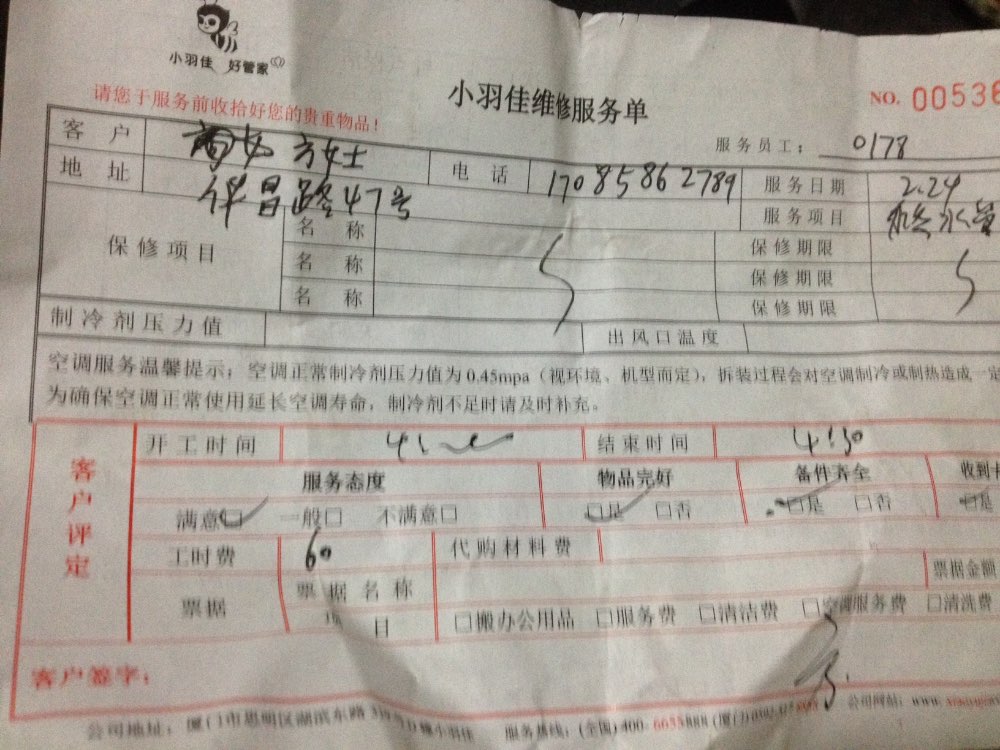 小羽佳 好管家
请您于服务前收拾好您的贵重物品！
小羽佳维修服务单
NO. 00536
服务员工： 0178
客户 女士 电话 17085862789 服务日期 2.24
地址 昌路47号 服务项目 水管
保修项目 名称 保修期限
名称 保修期限
名称 保修期限
制冷剂压力值 出风口温度
空调服务温馨提示：空调正常制冷剂压力值为0.45mpa（视环境、机型而定），拆装过程会对空调制冷或制热造成一定
为确保空调正常使用延长空调寿命，制冷剂不足时请及时补充。
客户评定
开工时间 结束时间 4:30
服务态度 物品完好 备件齐全 收到
满意□ 一般□ 不满意□ □是 □否 □是 □否 □是
工时费 60 代购材料费
票据 票据名称 票据金额
项目 □搬办公用品 □服务费 □清洁费 □空调服务费 □清洗费
客户签字：
公司地址：厦门市思明区湖滨东路 小羽佳 服务热线：(全国)400-6055888 (厦门)0592- 公司网站：www.